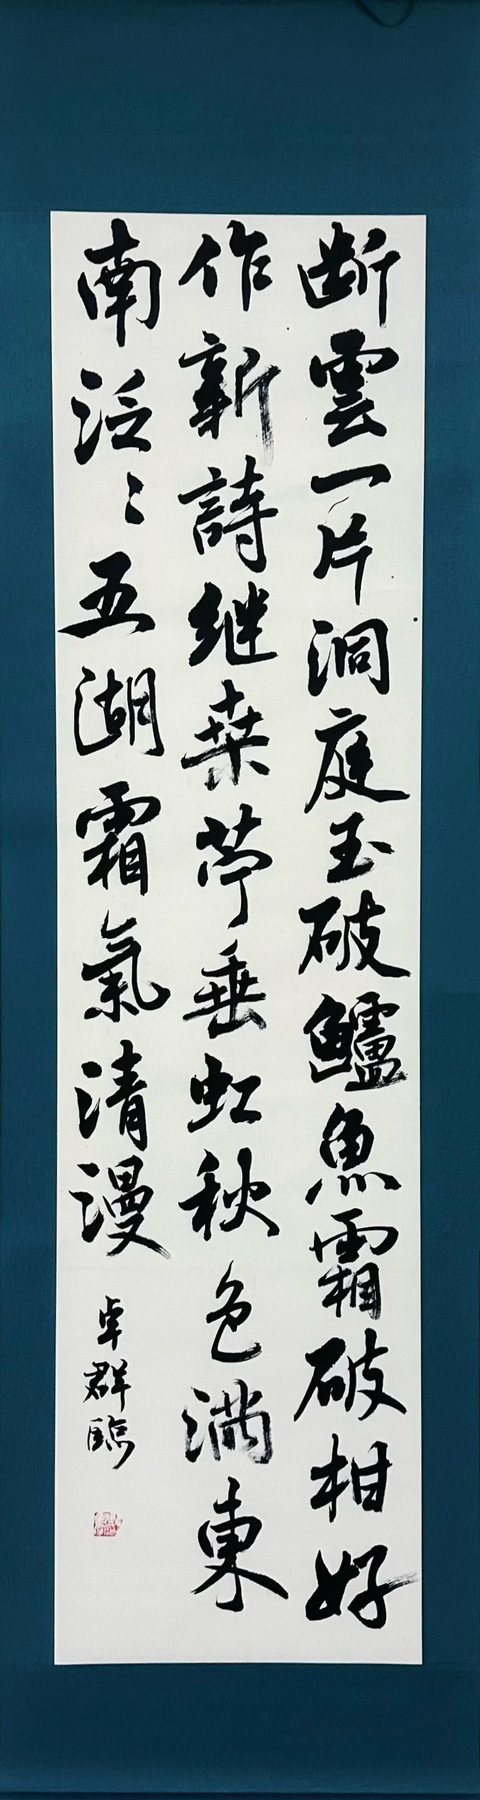 断雲一片洞庭玉破鱸魚霜破柑好
作新詩继桑苧垂虹秋色满東
南泛〻五湖霜氣清漫
卓群臨